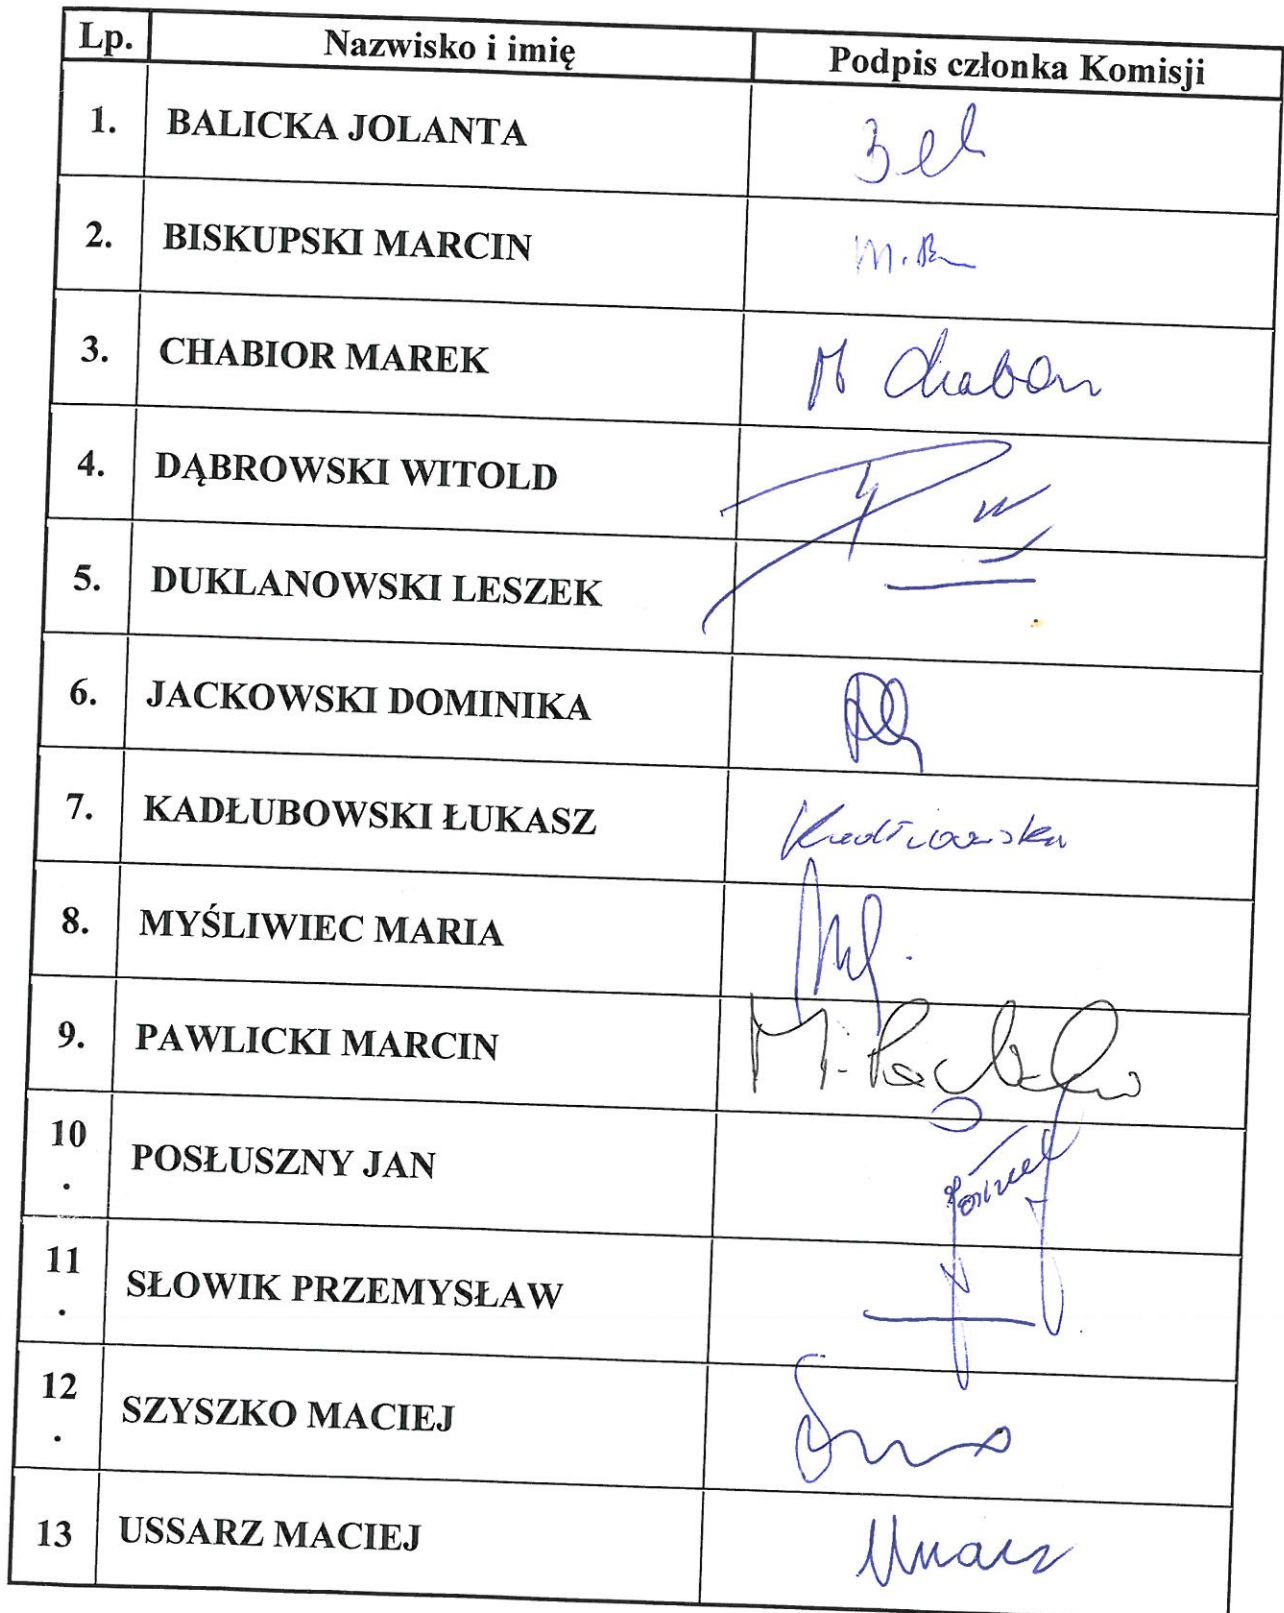 Lp. Nazwisko i imię Podpis członka Komisji
1. BALICKA JOLANTA
2. BISKUPSKI MARCIN
3. CHABIOR MAREK
4. DĄBROWSKI WITOLD
5. DUKLANOWSKI LESZEK
6. JACKOWSKI DOMINIKA
7. KADŁUBOWSKI ŁUKASZ
8. MYŚLIWIEC MARIA
9. PAWLICKI MARCIN
10
. POSŁUSZNY JAN
11
. SŁOWIK PRZEMYSŁAW
12
. SZYSZKO MACIEJ
13 USSARZ MACIEJ